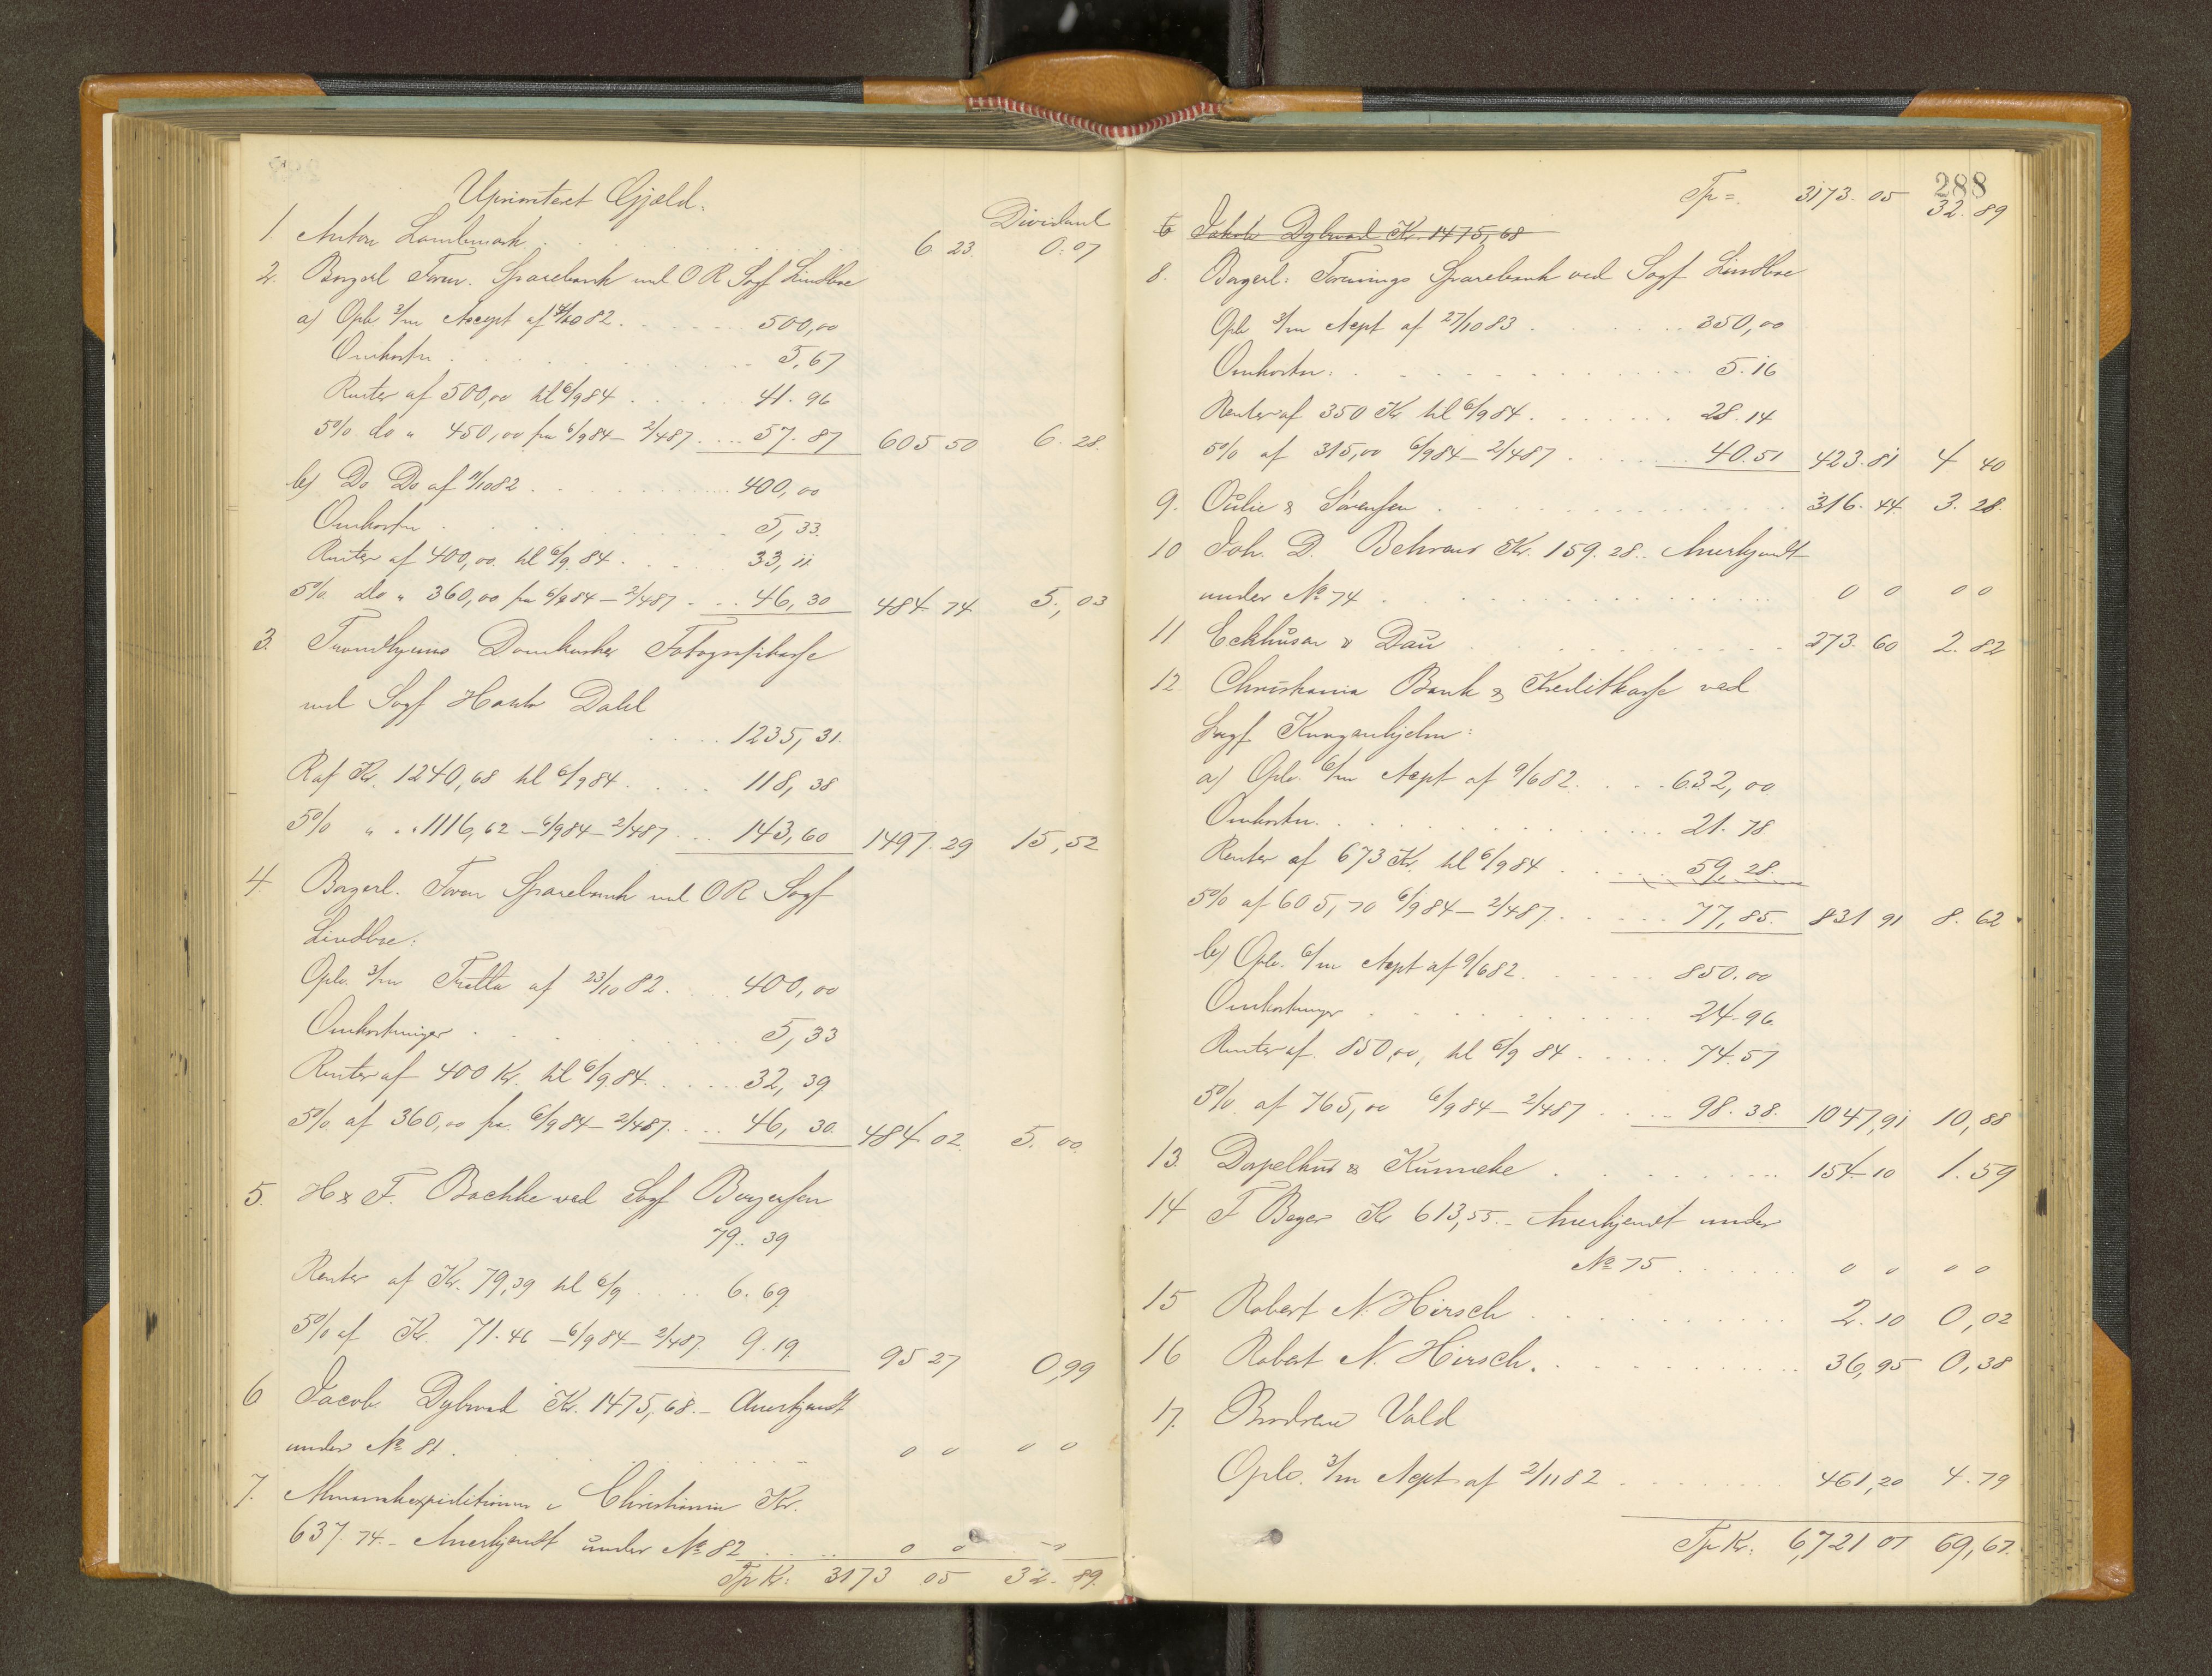 Uprioriteret Gjæld.
Dividend
1. Anton Lambmark . . . 6 23. 0.07
2. Borgerl Foren. Sparebank ved OR Sagf Lindboe
a) Opl. 3/m Accept af 82. . . . 500,00
Omkostn . . . 5,67
Renter af 500,00 til 6/9 84 . . . 41.96
5% do " 450,00 fra 6/9 84 – 2/4 87 . . . 57.87 605 50 6.28.
b) Do Do af 11/10 82 . . . 400,00
Omkostn . . . 5,33.
Renter af 400,00 til 6/9 84 . . . 33,11
5% do " 360,00 fra 6/9 84 – 2/4 87 . . . 46,30 484 74 5.,03
3. Trondhjems Domkirkes Fotografikasse
ved Sagf Hartv Dahl
. . . 1235,31.
R af Kr. 1240,68 til 6/9 84 . . . 118,38
5% " " 1116,62 – 6/9 84 – 2/4 87 . . . 143,60 1497.29 15,52
4. Borgerl. Foren Sparebank ved OR Sagf
Lindboe:
Oplo. 3/m Tratta af 23/10 82 . . . 400,00
Omkostninger . . . 5,33
Renter af 400 Kr. til 6/9 84 . . . 32,39
5% af 360,00 fra 6/9 84 – 2/4 87 . . . 46,30. 484.02. 5.00.
5. H & F. Bachke ved Sagf Borgersen
79..39
Renter af Kr. 79,39 til 6/9 . . . 6.69
5% af Kr. 71.46 – 6/9 84 – 2/4 87 9.19 95 27 0,99
6 Jacob Dybwad Kr. 1475,68. – Anerkjendt
under No 81 . . . 0 0 0 0
7. Almanakexpeditionen i Christiania Kr.
637.74. – Anerkjendt under No 82 . . . 0 0 – 0
Tp Kr: 3173 05 32.89.
288
Tp = 3173.05 32.89
6 Jakob Dybwad Kr. 1475,68
8. Borgerl: Forenings Sparebank ved Sagf Lindboe
Opl 3/m Acpt af 27/10 83 . . . 350,00
Omkostn: . . . 5.16
Renter af 350 Kr til 6/9 84 . . . 28.14
5% af 315,00 6/9 84 – 2/4 87 . . . 40.51 423.81 4 40
9. Oulie & Sörensen . . . 316.44. 3.28.
10 Joh. D. Behrens Kr. 159.28. Anerkjendt
under No 74 . . . 0 0 0 0
11 Eckhusen & Dau . . . 273.60 2.82
12. Christiania Bank & Kreditkasse ved
Sagf Kunganhjelm:
a) Oplo. 6/m Acpt af 9/6 82 . . . 632,00
Omkostn. . . . 21.78
Renter af 673 Kr. til 6/9 84 . . . 59,28.
5% af 605,70 6/9 84 – 2/4 87 . . . 77,85. 831 91 8.62
b) Oplo. 6/m Acpt af 9/6 82 . . . 850.00
Omkostninger . . . 24.96.
Renter af 850,00, til 6/9 84 . . . 74.57
5% af 765,00 6/9 84 – 2/4 87 . . . 98.38. 1047,91 10,88
13. Dopelhus & Künneke . . . 154.10 1.59
14 F Beyer Kr 613,55. – Anerkjendt under
No 75 . . . 0 0 0 0
15 Robert N. Hirsch . . . 2.10 0,02
16 Robert N. Hirsch . . . 36,95 0,38
17. Brødrene Vold
Oplo. 3/m Acpt af 2/11 82 . . . 461,20 4.79
Tp Kr: 6,721 07 69,67.